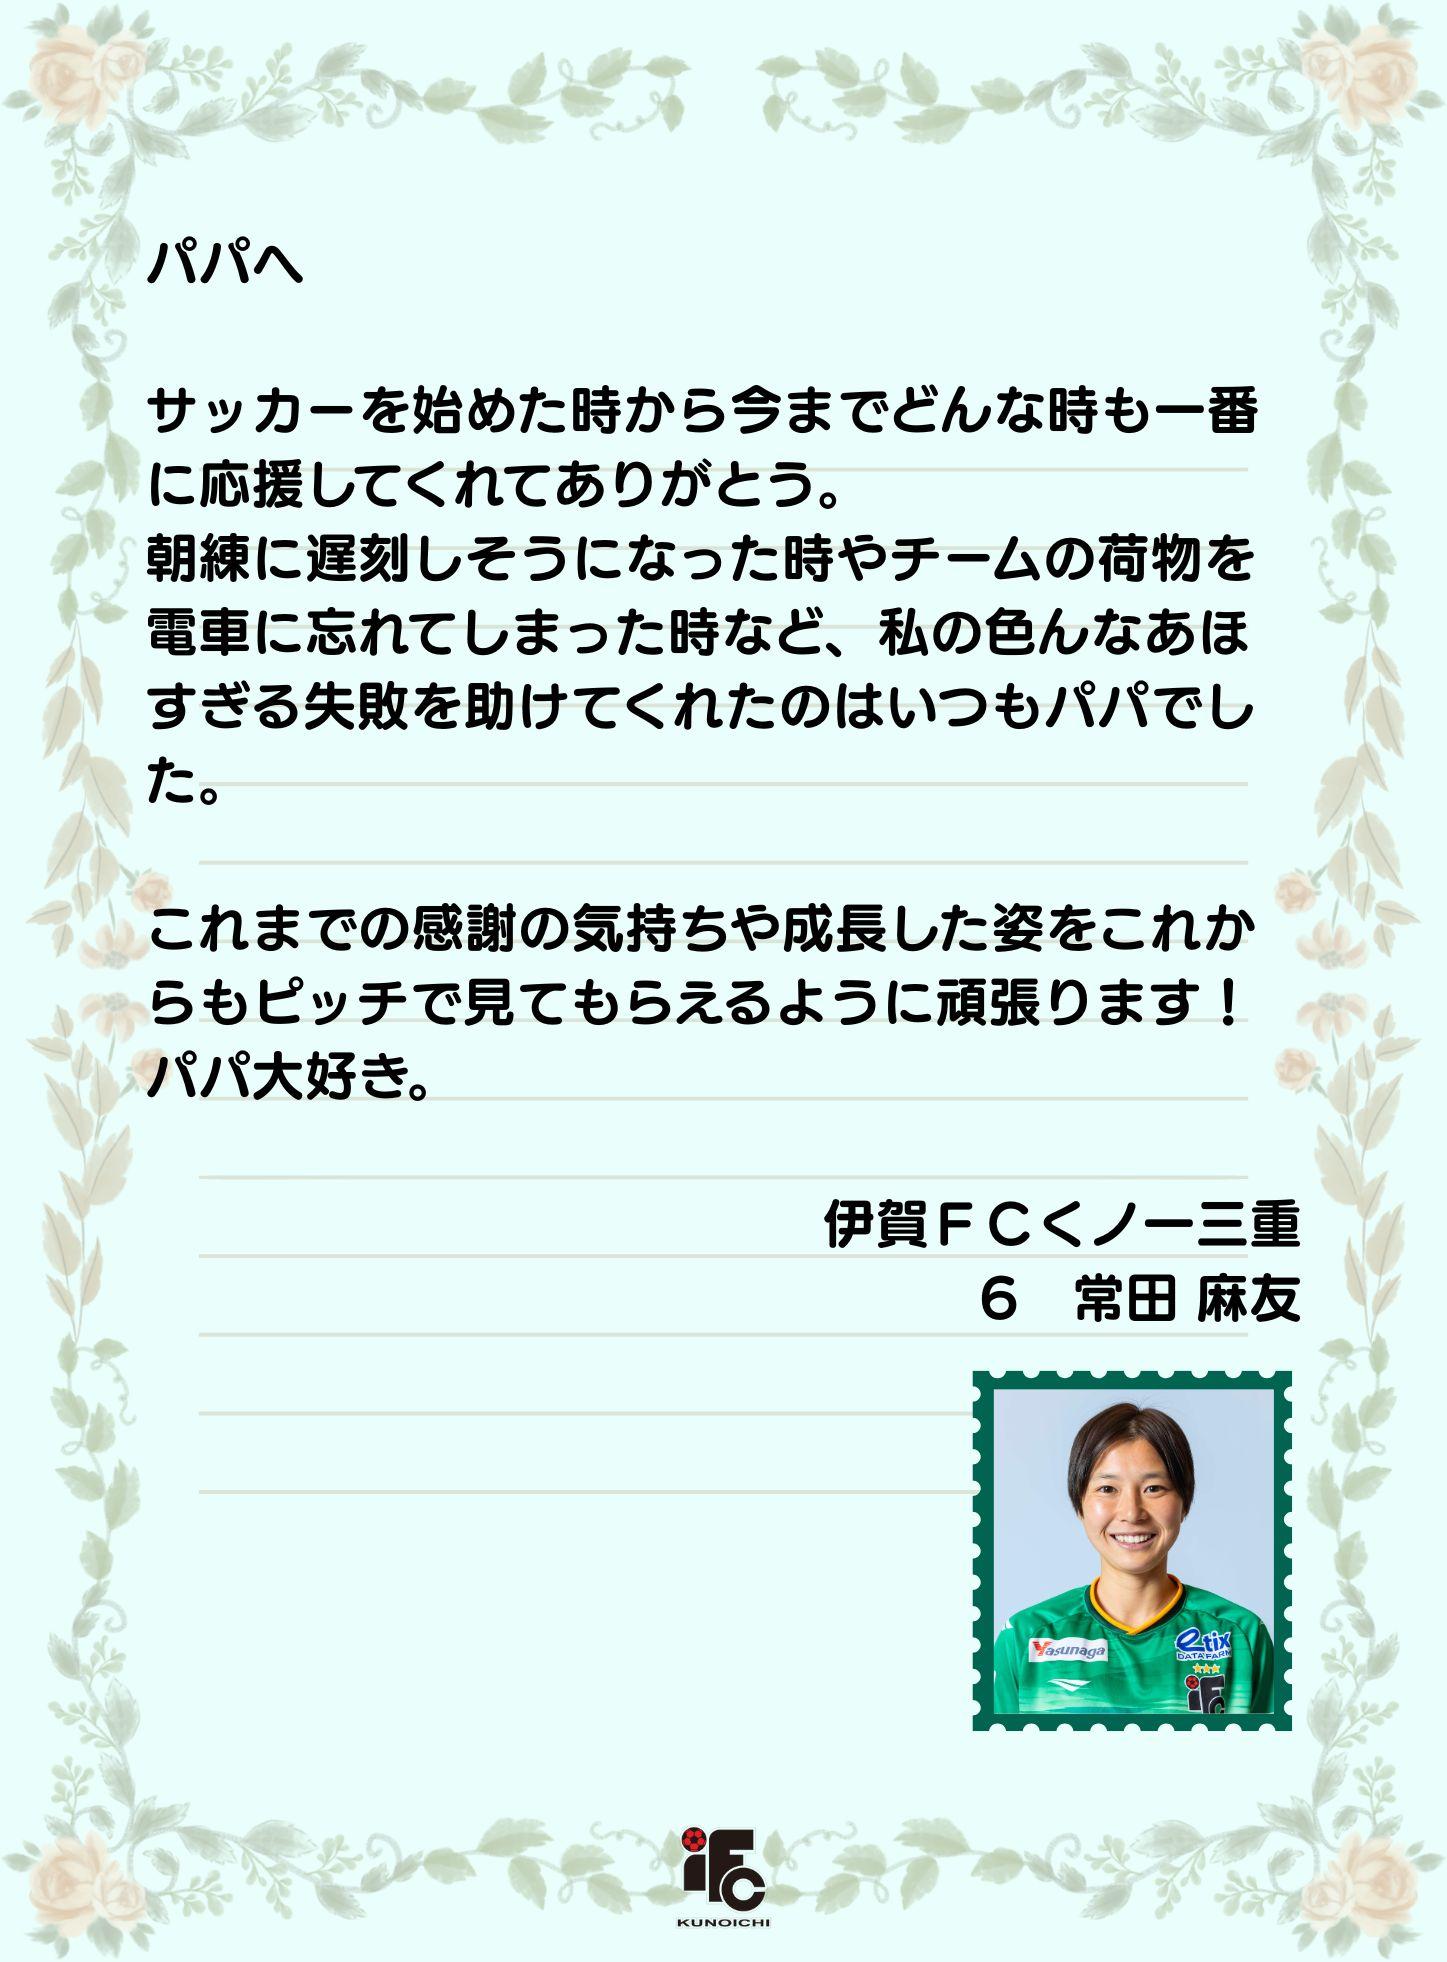 パパへ
サッカーを始めた時から今までどんな時も一番
に応援してくれてありがとう。
朝練に遅刻しそうになった時やチームの荷物を
電車に忘れてしまった時など、私の色んなあほ
すぎる失敗を助けてくれたのはいつもパパでし
た。
これまでの感謝の気持ちや成長した姿をこれか
らもピッチで見てもらえるように頑張ります！
パパ大好き。
伊賀ＦＣくノ一三重
６　常田 麻友
Yasunaga
etix
DATA FARM
iFC
iFC
KUNOICHI